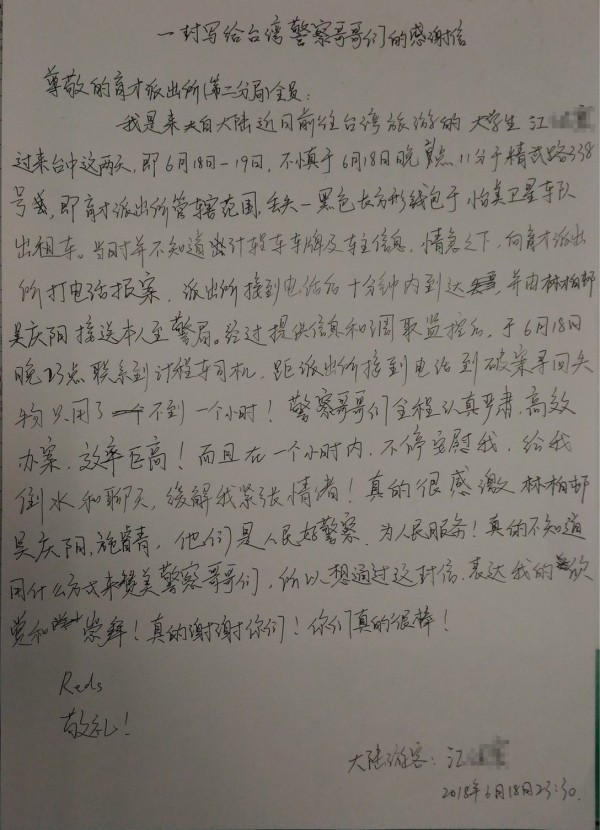 一封写给台湾警察哥哥们的感谢信
尊敬的育才派出所(第二分局)全员:
我是来自大陆近日前往台湾旅游的大学生江
过来台中这两天,即6月18日—19日,不慎于6月18日晚点11分于精武路338
号,即育才派出所管辖范围,丢失一黑色长方形钱包于怡美卫星车队
出租车。当时并不知道计程车车牌及车主信息,情急之下,向育才派出
所打电话报案,派出所接到电话后十分钟内到达,并由林柏邦
吴庆阳接送本人至警局。经过提供信息和调取监控后,于6月18日
晚23点联系到计程车司机,距派出所接到电话到破案寻回失
物只用了不到一个小时!警察哥哥们全程认真严肃,高效
办案,效率巨高!而且在一个小时内,不停安慰我,给我
倒水和聊天,缓解我紧张情者!真的很感激林柏邦
吴庆阳,施睿青,他们是人民好警察,为人民服务!真的不知道
用什么方式来赞美警察哥哥们,所以想通过这封信,表达我的欣
赏和崇拜!真的谢谢你们!你们真的很棒!
Reds
敬礼!
大陆游客:江
2018年6月18日23:30.